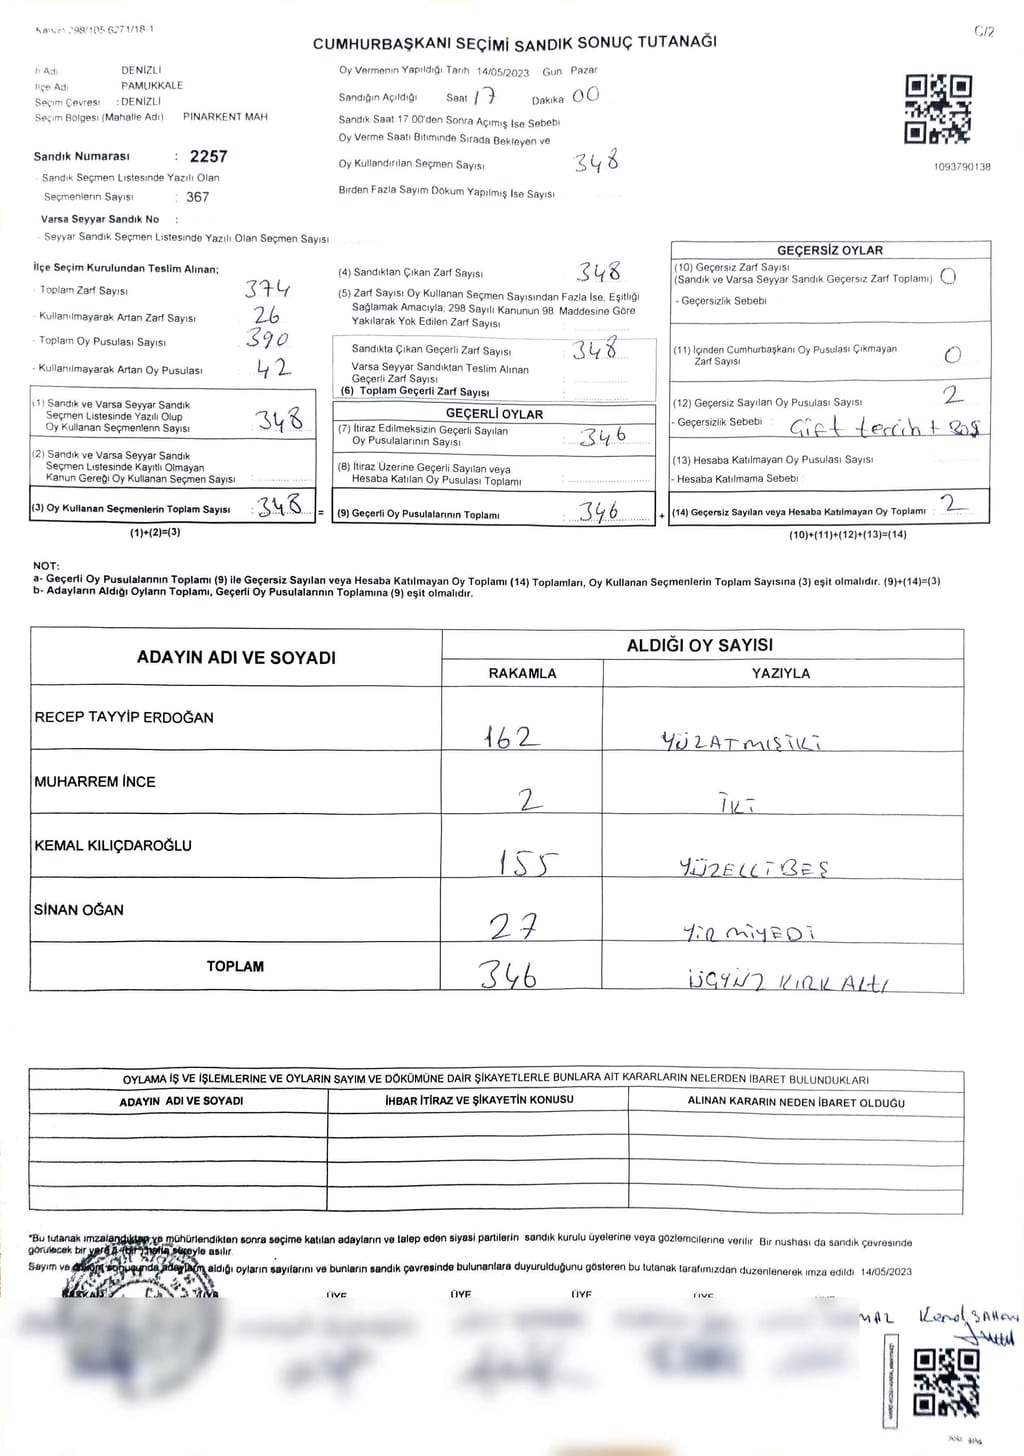 C/2
CUMHURBAŞKANI SEÇİMİ SANDIK SONUÇ TUTANAĞI
İl Adı DENİZLİ
İlçe Adı PAMUKKALE
Seçim Çevresi : DENİZLİ
Seçim Bölgesi (Mahalle Adı) PINARKENT MAH
Sandık Numarası : 2257
- Sandık Seçmen Listesinde Yazılı Olan
Seçmenlerin Sayısı : 367
Varsa Seyyar Sandık No :
- Seyyar Sandık Seçmen Listesinde Yazılı Olan Seçmen Sayısı
Oy Vermenin Yapıldığı Tarih 14/05/2023 Gün Pazar
Sandığın Açıldığı Saat 17 Dakika 00
Sandık Saat 17 00'den Sonra Açımış İse Sebebi
Oy Verme Saati Bitiminde Sırada Bekleyen ve
Oy Kullandırılan Seçmen Sayısı 348
Birden Fazla Sayım Döküm Yapılmış İse Sayısı
1093790138
İlçe Seçim Kurulundan Teslim Alınan;
- Toplam Zarf Sayısı 374
- Kullanılmayarak Artan Zarf Sayısı 26
- Toplam Oy Pusulası Sayısı 390
- Kullanılmayarak Artan Oy Pusulası 42
(1) Sandık ve Varsa Seyyar Sandık
Seçmen Listesinde Yazılı Olup
Oy Kullanan Seçmenlerin Sayısı : 348
(2) Sandık ve Varsa Seyyar Sandık
Seçmen Listesinde Kayıtlı Olmayan
Kanun Gereği Oy Kullanan Seçmen Sayısı :
(3) Oy Kullanan Seçmenlerin Toplam Sayısı : 348 =
(1)+(2)=(3)
(4) Sandıktan Çıkan Zarf Sayısı 348
(5) Zarf Sayısı Oy Kullanan Seçmen Sayısından Fazla İse, Eşitliği
Sağlamak Amacıyla; 298 Sayılı Kanunun 98 Maddesine Göre
Yakılarak Yok Edilen Zarf Sayısı
Sandıkta Çıkan Geçerli Zarf Sayısı : 348
Varsa Seyyar Sandıktan Teslim Alınan
Geçerli Zarf Sayısı :
(6) Toplam Geçerli Zarf Sayısı :
GEÇERLİ OYLAR
(7) İtiraz Edilmeksizin Geçerli Sayılan
Oy Pusulalarının Sayısı : 346
(8) İtiraz Üzerine Geçerli Sayılan veya
Hesaba Katılan Oy Pusulası Toplamı :
(9) Geçerli Oy Pusulalarının Toplamı : 346 +
GEÇERSİZ OYLAR
(10) Geçersiz Zarf Sayısı
(Sandık ve Varsa Seyyar Sandık Geçersiz Zarf Toplamı) 0
- Geçersizlik Sebebi
(11) İçinden Cumhurbaşkanı Oy Pusulası Çıkmayan
Zarf Sayısı 0
(12) Geçersiz Sayılan Oy Pusulası Sayısı 2
- Geçersizlik Sebebi : Çift tercih + Boş
(13) Hesaba Katılmayan Oy Pusulası Sayısı
- Hesaba Katılmama Sebebi :
(14) Geçersiz Sayılan veya Hesaba Katılmayan Oy Toplamı : 2
(10)+(11)+(12)+(13)=(14)
NOT:
a- Geçerli Oy Pusulalarının Toplamı (9) ile Geçersiz Sayılan veya Hesaba Katılmayan Oy Toplamı (14) Toplamları, Oy Kullanan Seçmenlerin Toplam Sayısına (3) eşit olmalıdır. (9)+(14)=(3)
b- Adayların Aldığı Oyların Toplamı, Geçerli Oy Pusulalarının Toplamına (9) eşit olmalıdır.
ADAYIN ADI VE SOYADI ALDIĞI OY SAYISI
RAKAMLA YAZIYLA
RECEP TAYYİP ERDOĞAN 162 YÜZATMIŞİKİ
MUHARREM İNCE 2 İKİ
KEMAL KILIÇDAROĞLU 155 YÜZELLİBEŞ
SİNAN OĞAN 27 YİRMİYEDİ
TOPLAM 346 ÜÇYÜZ KIRK ALTI
OYLAMA İŞ VE İŞLEMLERİNE VE OYLARIN SAYIM VE DÖKÜMÜNE DAİR ŞİKAYETLERLE BUNLARA AİT KARARLARIN NELERDEN İBARET BULUNDUKLARI
ADAYIN ADI VE SOYADI İHBAR İTİRAZ VE ŞİKAYETİN KONUSU ALINAN KARARIN NEDEN İBARET OLDUĞU
*Bu tutanak imzalandıktan ve mühürlendikten sonra seçime katılan adayların ve talep eden siyasi partilerin sandık kurulu üyelerine veya gözlemcilerine verilir Bir nushası da sandık çevresinde
görülecek bir yere 1 (bir) hafta süreyle asılır.
Sayım ve döküm sonucunda adayların aldığı oyların sayılarını ve bunların sandık çevresinde bulunanlara duyurulduğunu gösteren bu tutanak tarafımızdan düzenlenerek imza edildi 14/05/2023
BAŞKAN ÜYE ÜYE ÜYE ÜYE